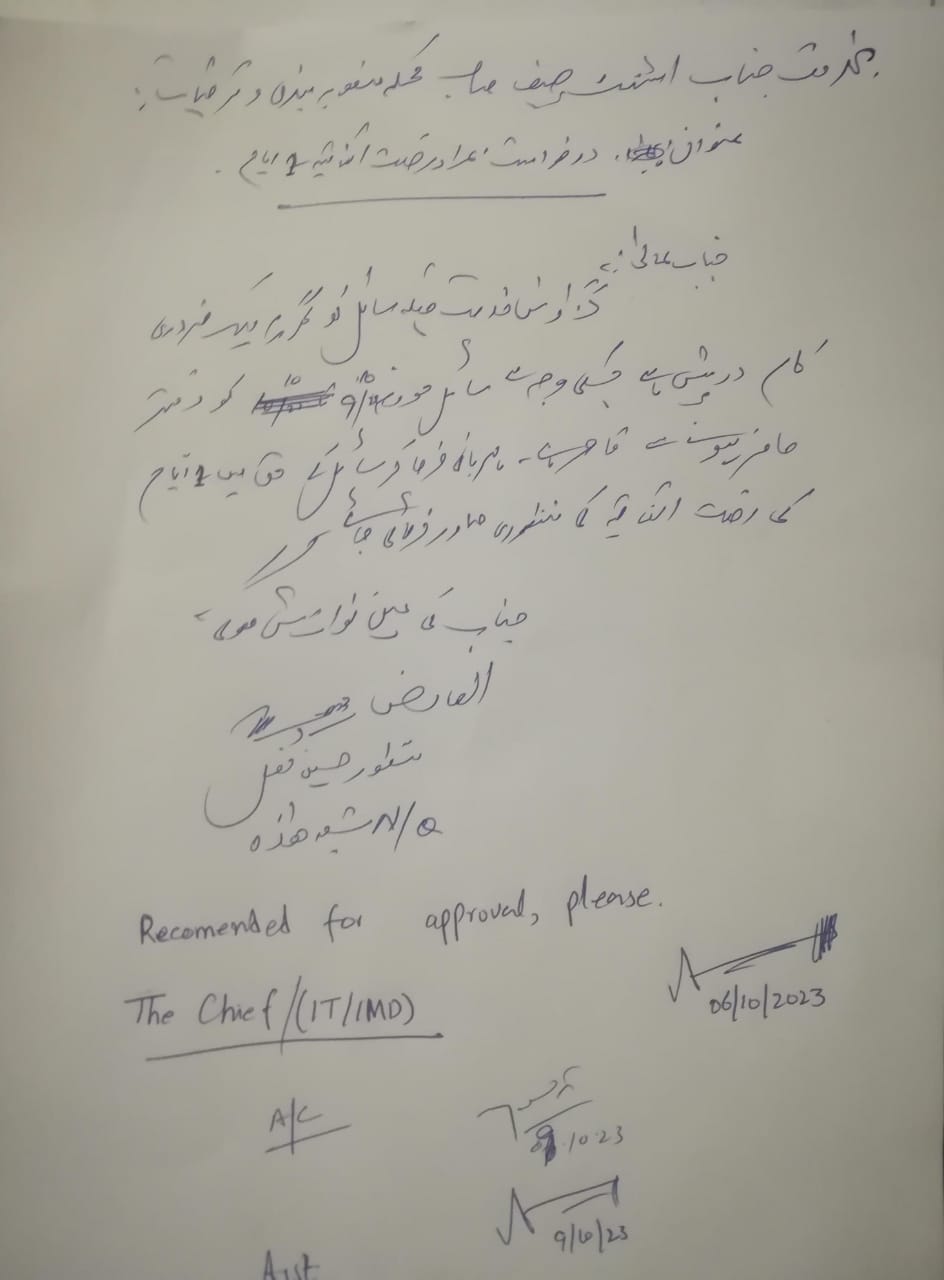 بخدمت جناب اسسٹنٹ چیف صاحب محکمہ منصوبہ بندی و ترقیات:
عنوان: درخواست بمراد رخصت اتفاقیہ 1 ایام۔
جناب عالی!
گزارش خدمت ہیکہ سائل کو گھر پر ایک ضروری
کام درپیش ہے جسکی وجہ سے سائل مورخہ 9/10 کو دفتر
حاضر ہونے سے قاصر ہے۔ مہربانی فرما کر سائل کے حق میں 1 ایام
کی رخصت اتفاقیہ کی منظوری صادر فرمائی جائے
جناب کی عین نوازش ہوگی۔
العارض
منظور حسین
N/Q شعبہ ھذہ
Recomended for approval, please.
06/10/2023
The Chief/(IT/IMD)
A/C
10.23
9/10/23
Asst